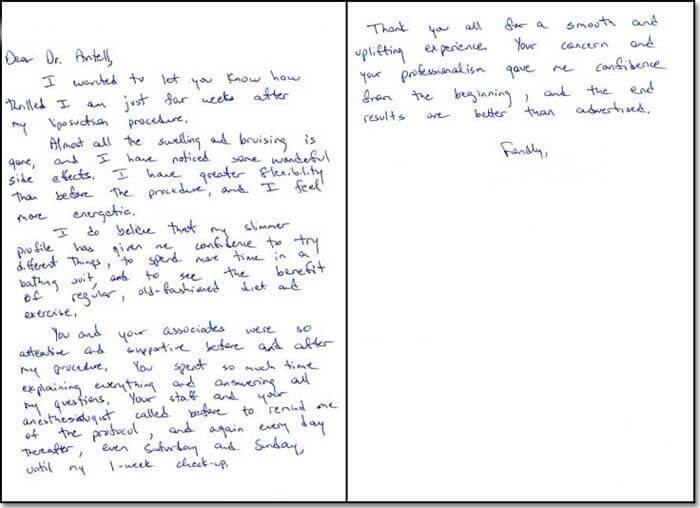 Dear Dr. Antell,
I wanted to let you know how
thrilled I am just four weeks after
my liposuction procedure.
Almost all the swelling and bruising is
gone, and I have noticed some wonderful
side effects. I have greater flexibility
than before the procedure, and I feel
more energetic.
I do believe that my slimmer
profile has given me confidence to try
different things, to spend more time in a
bathing suit, and to see the benefit
of regular, old-fashioned diet and
exercise.
You and your associates were so
attentive and supportive before and after
my procedure. You spent so much time
explaining everything and answering all
my questions. Your staff and your
anesthesiologist called before to remind me
of the protocol, and again every day
thereafter, even Saturday and Sunday,
until my 1-week check-up.
Thank you all for a smooth and
uplifting experience. Your concern and
your professionalism gave me confidence
from the beginning, and the end
results are better than advertised.
Fondly,